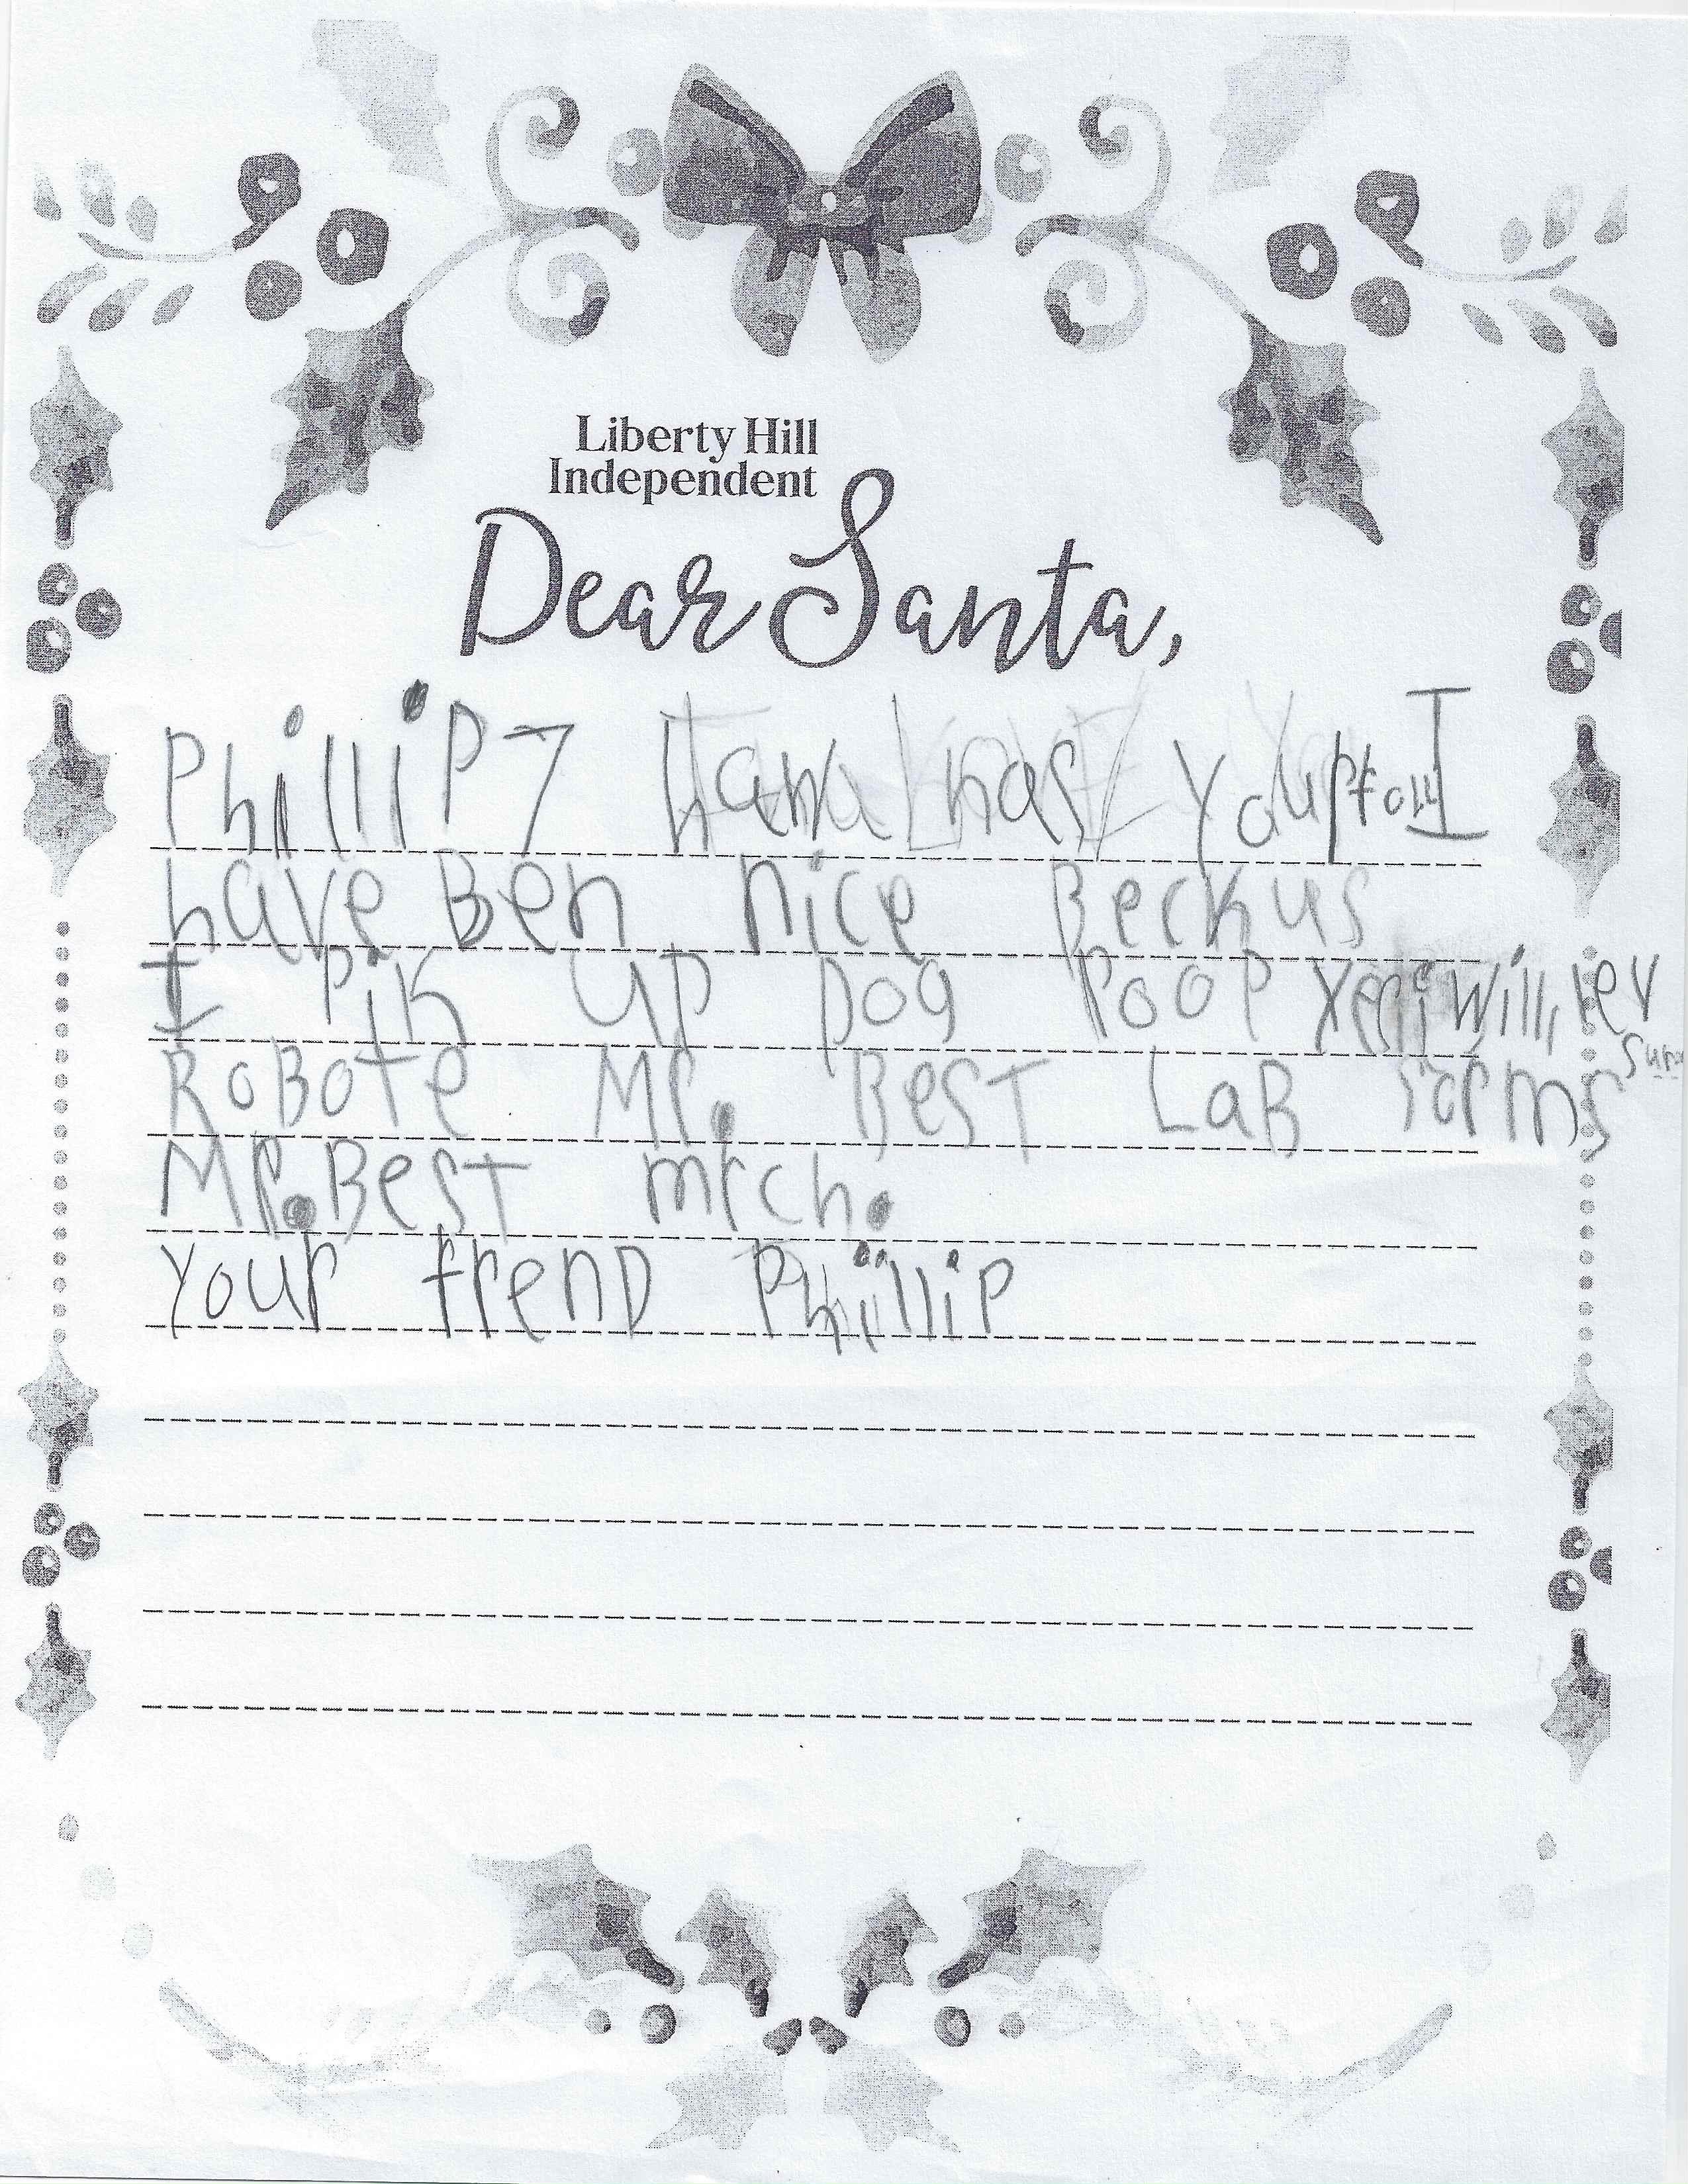 Liberty Hill
Independent
Dear Santa,
Phillip 7 has your I
have Ben nice Beckus
I Pik up Dog Poop
RoBote Mr. BesT LaB
Mr. BesT mrch.
Your frenD Phillip